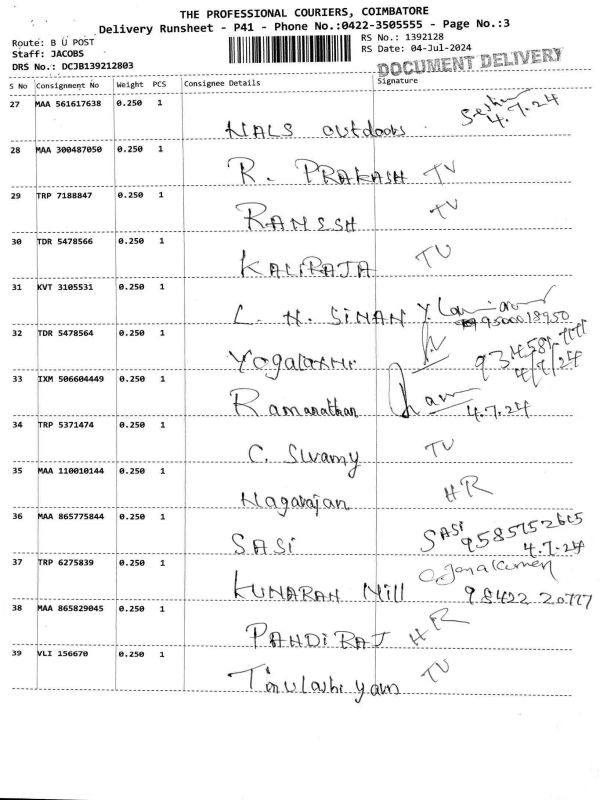 THE PROFESSIONAL COURIERS, COIMBATORE
Delivery Runsheet - P41 - Phone No.:0422-3505555 - Page No.:3
Route: B U POST
Staff: JACOBS
DRS No.: DCJB139212803
RS No.: 1392128
RS Date: 04-Jul-2024
DOCUMENT DELIVERY
S No Consignment No Weight PCS Consignee Details Signature
27 MAA 561617638 0.250 1
NALS outdoors 4.7.24
28 MAA 300487050 0.250 1
R. PRAKASH TV
29 TRP 7188847 0.250 1
RAMESH TV
30 TDR 5478566 0.250 1
KALIRAJA TV
31 KVT 3105531 0.250 1
L. N. SINAN 9500018950
32 TDR 5478564 0.250 1
Yogalaxmi 4/7/24
33 IXM 506604449 0.250 1
Ramanathan Ram 4.7.24
34 TRP 5371474 0.250 1
C. Swamy TV
35 MAA 110010144 0.250 1
Nagarajan HR
36 MAA 865775844 0.250 1
SASI SASI 4.7.24
37 TRP 6275839 0.250 1
KUMARAN Mill 98422 20777
38 MAA 865829045 0.250 1
PANDIRAJ HR
39 VLI 156670 0.250 1
TV